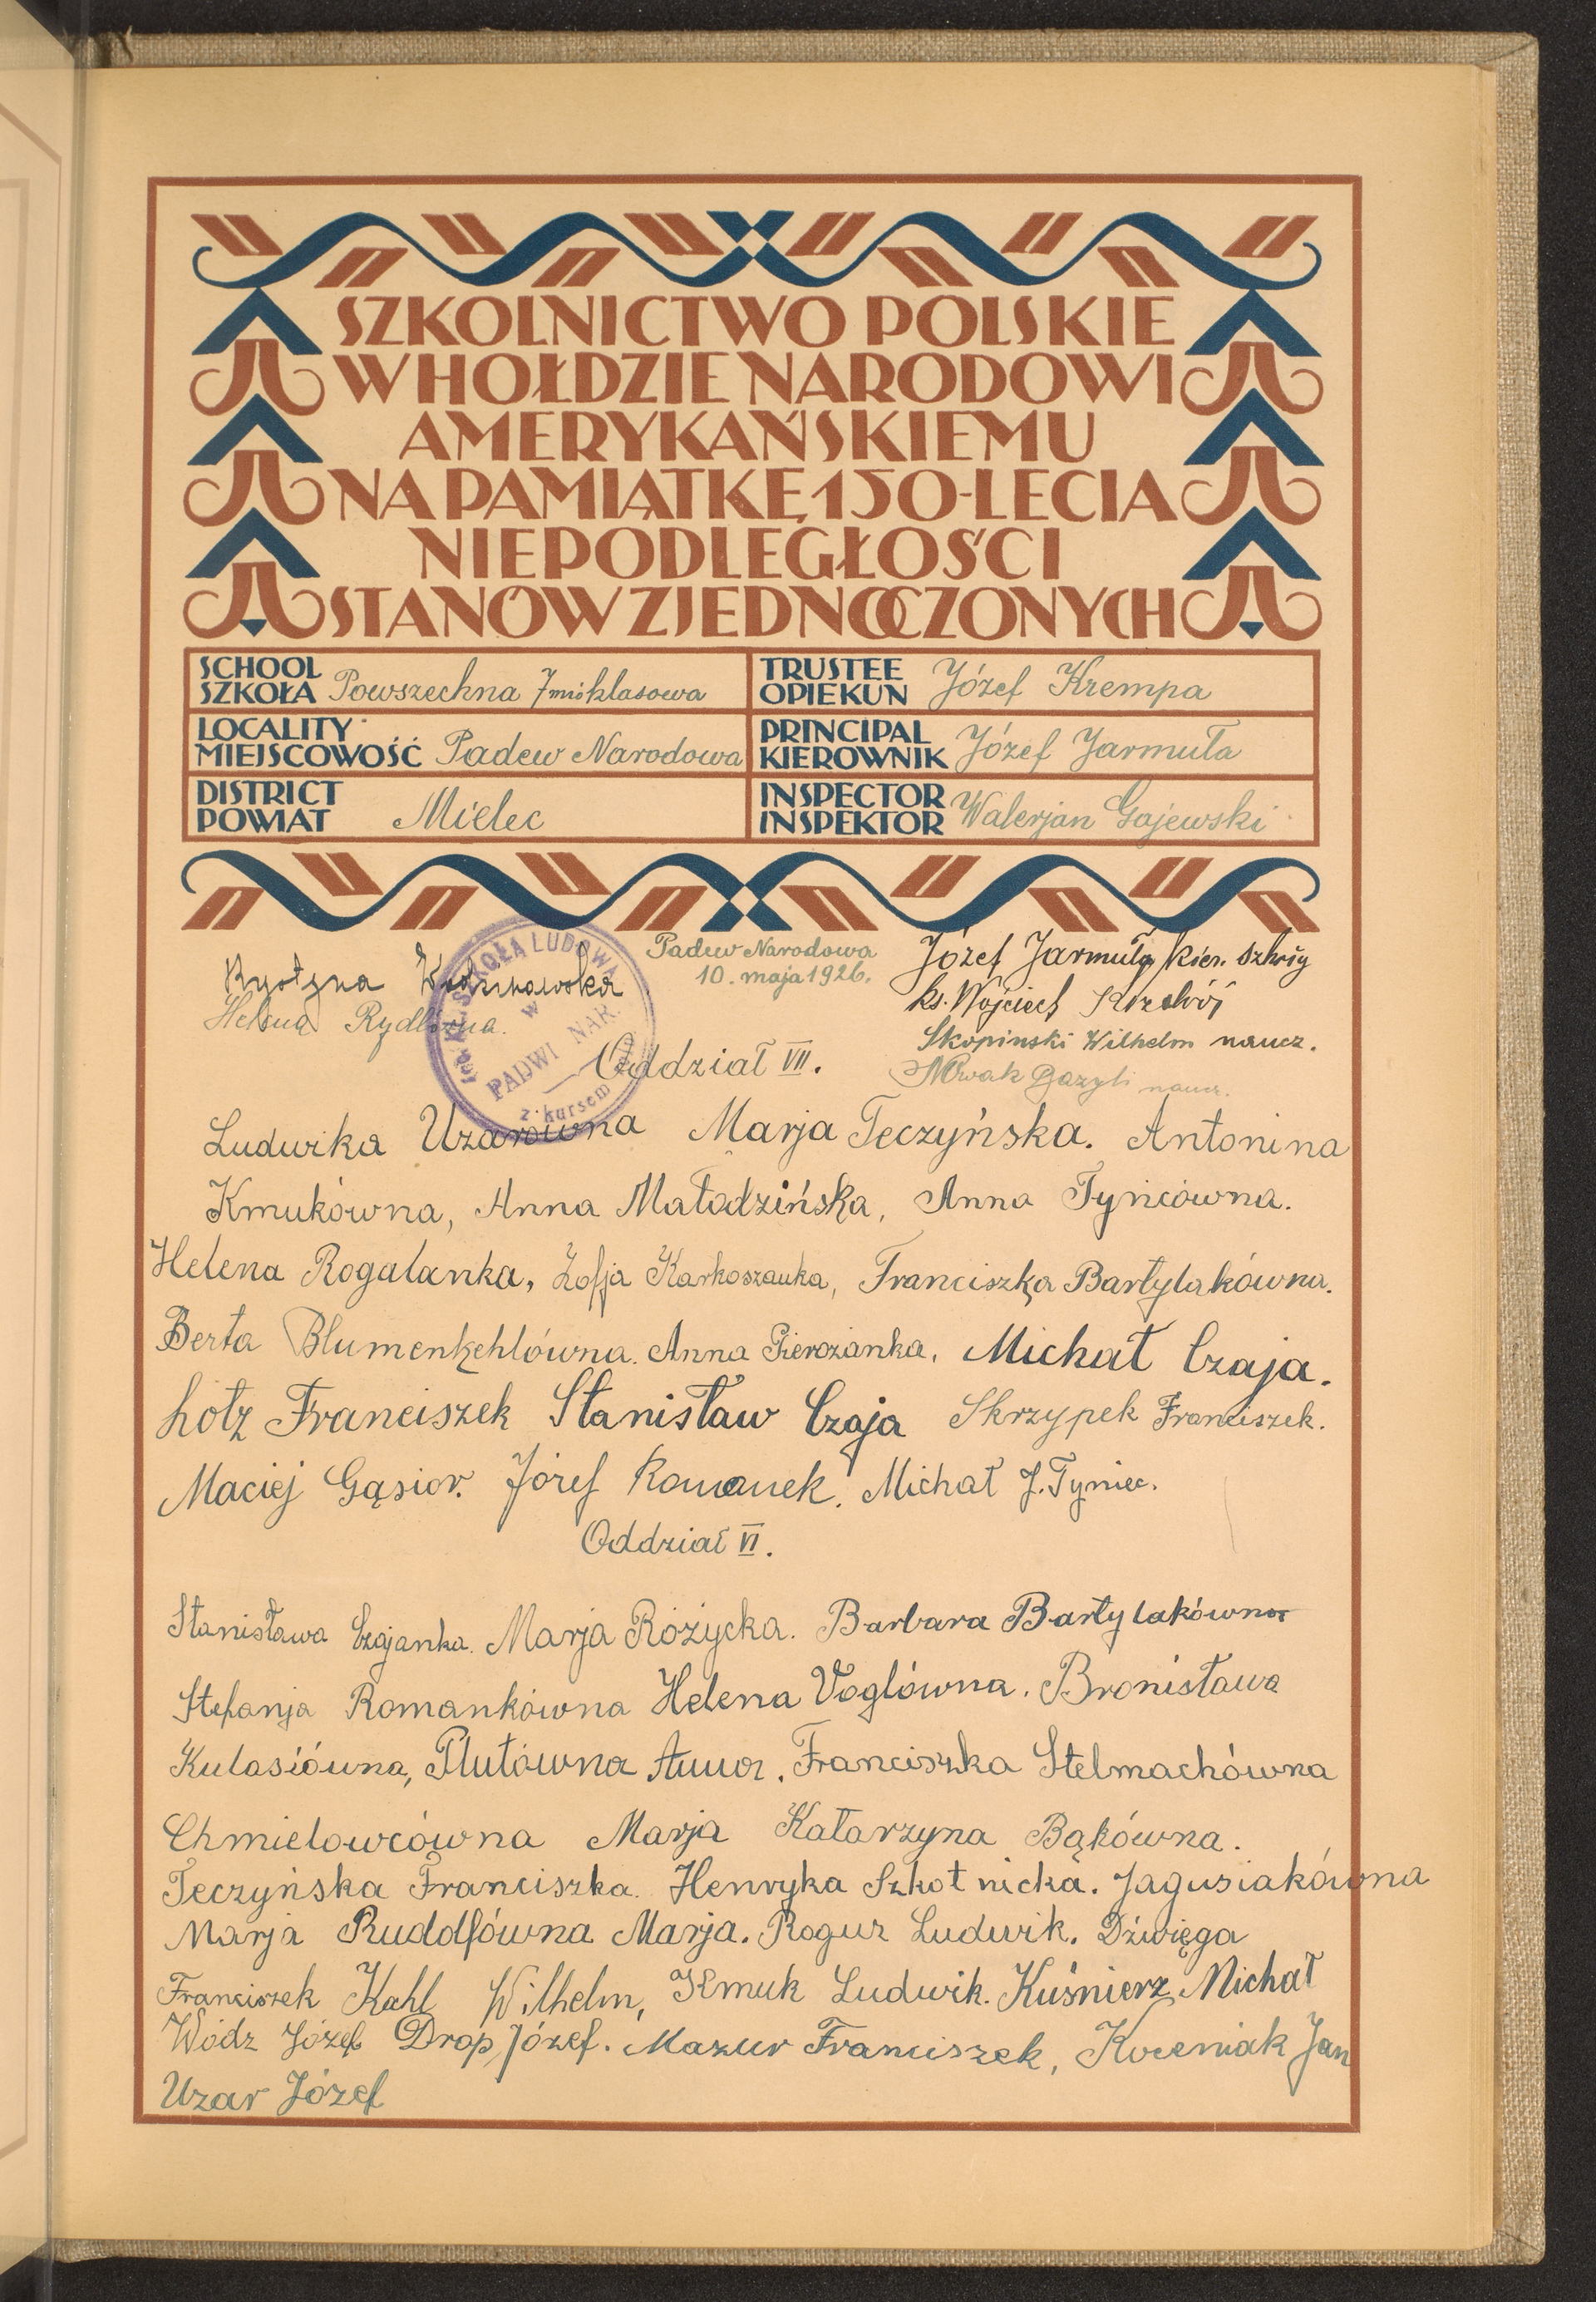 SZKOLNICTWO POLSKIE
W HOŁDZIE NARODOWI
AMERYKAŃSKIEMU
NA PAMIĄTKĘ 150-LECIA
NIEPODLEGŁOŚCI
STANÓW ZJEDNOCZONYCH
SCHOOL
SZKOŁA Powszechna 7mioklasowa
TRUSTEE
OPIEKUN Józef Krempa
LOCALITY
MIEJSCOWOŚĆ Padew Narodowa
PRINCIPAL
KIEROWNIK Józef Jarmuła
DISTRICT
POWIAT Mielec
INSPECTOR
INSPEKTOR Walerjan Gajewski
SZKOŁA LUDOWA
w
PADWI NAR.
z kursem
Padew Narodowa
10. maja 1926.
Krystyna
Helena
Józef Jarmuła kier. szkoły
ks. Wojciech
Skopinski Wilhelm naucz.
Nowak Bazyli naucz.
Oddział VII.
Ludwika Uzarówna Marja Teczyńska. Antonina
Kmukówna, Anna Małodzińska, Anna Tyńcówna.
Helena Rogalanka, Zofja Karkoszanka, Franciszka Bartylakówna.
Berta Blumenkehlówna. Anna Pierozanka. Michał Czaja.
hotz Franciszek Stanisław Czaja Skrzypek Franciszek.
Maciej Gąsior. Józef Romanek. Michał J. Tyniec.
Oddział VI.
Stanisława Czajanka. Marja Różycka. Barbara Bartylakówna
Stefanja Romankówna Helena Voglówna. Bronisława
Kulasiówna, Plutówna Anna. Franciszka Stelmachówna
Chmielowcówna Marja Katarzyna Bąkówna.
Teczyńska Franciszka. Henryka Szkotnicka. Jagusiakówna
Marja Rudolfówna Marja. Roguz Ludwik. Dźwięga
Franciszek Kahl Wilhelm, Kmuk Ludwik. Kuśnierz Michał
Wódz Józef Drop Józef. Mazur Franciszek, Koceniak Jan
Uzar Józef